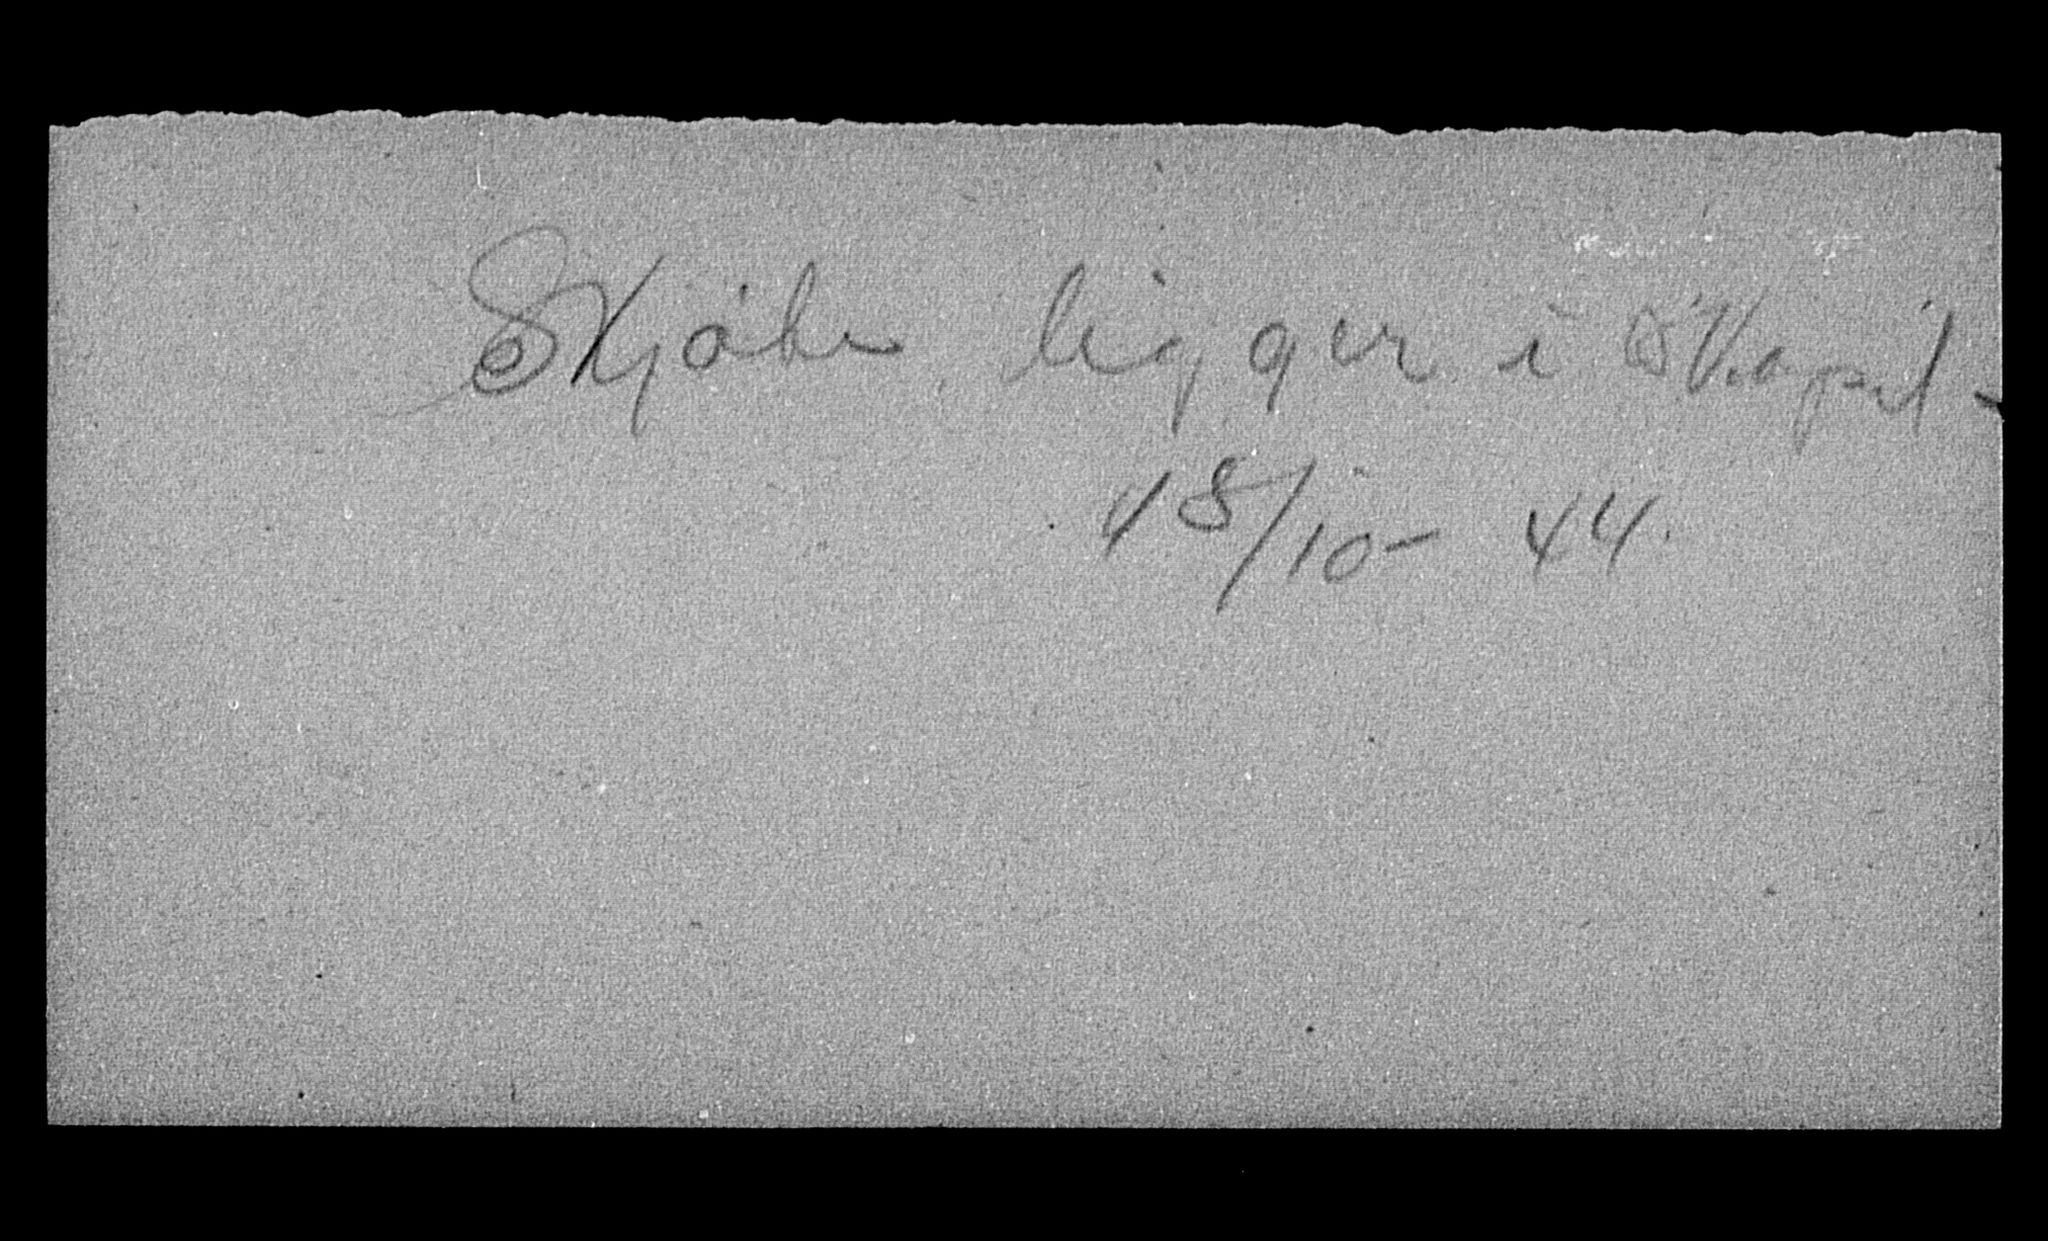 Skjøte ligger i Skapet -
18/10 - 44.